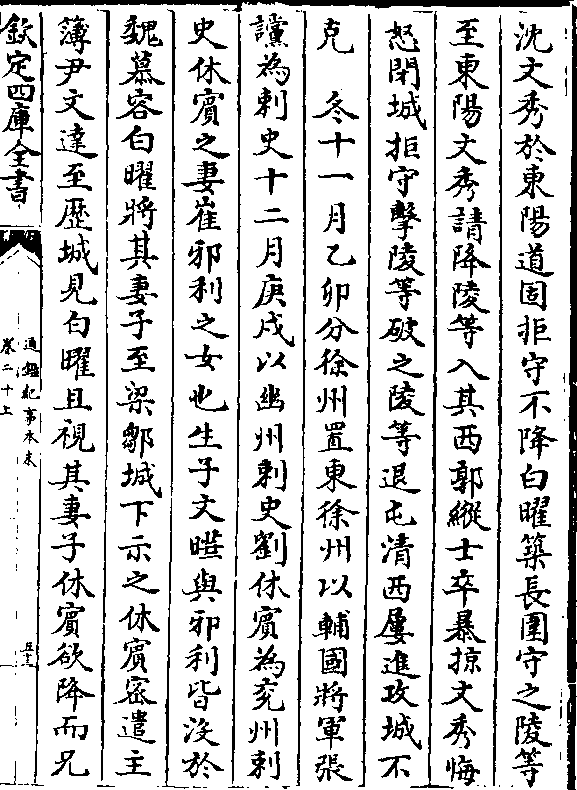 沈文秀於東陽道固拒守不降白曜築長圍守之陵等
至東陽文秀請降陵等入其西郭縱士卒暴掠文秀悔
怒閉城拒守擊陵等破之陵等退屯清西屢進攻城不
克　冬十一月乙卯分徐州置東徐州以輔國將軍張
讜為刺史十二月庚戌以幽州刺史劉休賓為兖州刺
史休賓之妻崔邪利之女也生子文曄與邪利皆沒於
魏慕容白曜將其妻子至梁鄒城下示之休賓密遣主
簿尹文達至歷城見白曜且視其妻子休賓欲降而兄
欽定四庫全書
通鑑紀事本末
卷二十上